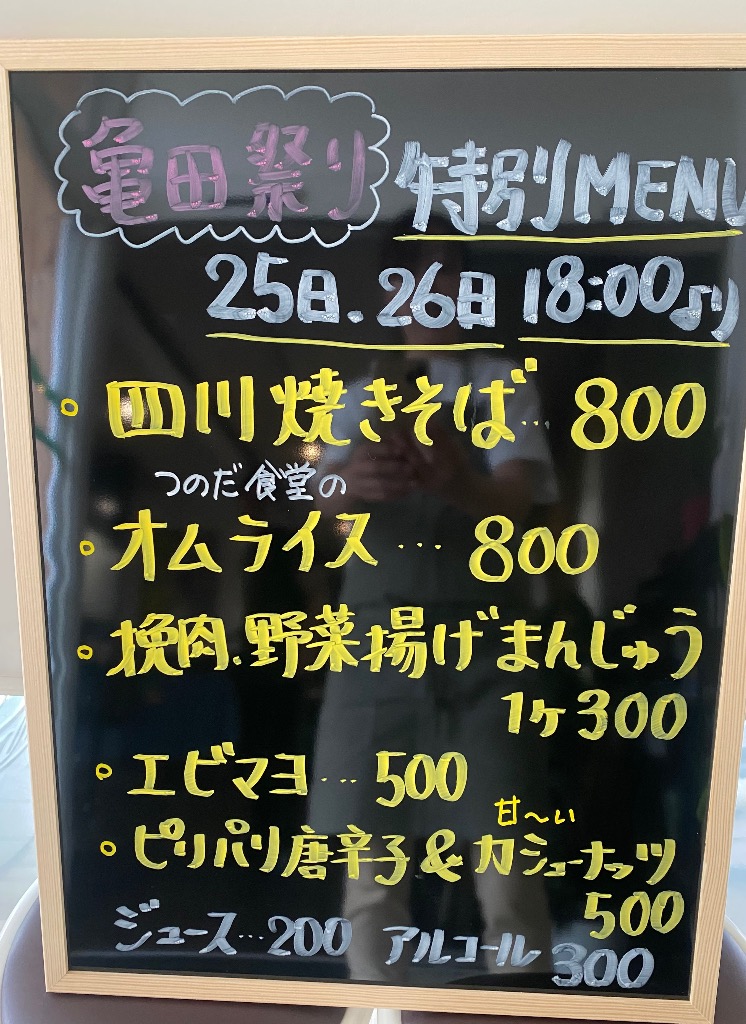 亀田祭り 特別MENU
25日.26日 18:00より
。四川焼きそば… 800
つのだ食堂の
。オムライス… 800
。挽肉、野菜揚げまんじゅう
1ケ300
。エビマヨ… 500
甘〜い
。ピリパリ唐辛子&カシューナッツ
500
ジュース…200 アルコール300